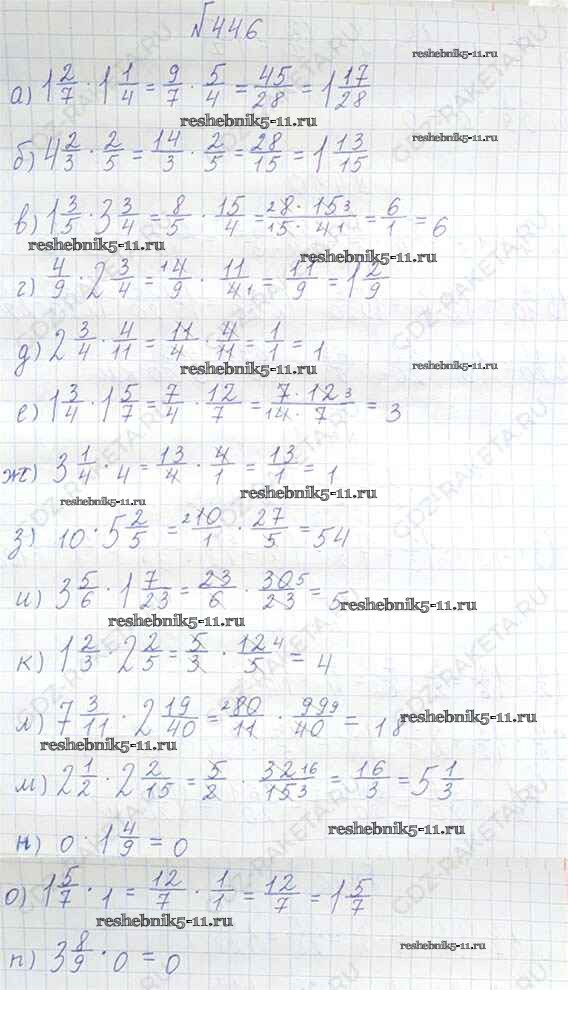 №446
reshebnik5-11.ru
а) 1 2/7 · 1 1/4 = 9/7 · 5/4 = 45/28 = 1 17/28
reshebnik5-11.ru
reshebnik5-11.ru
б) 4 2/3 · 2/5 = 14/3 · 2/5 = 28/15 = 1 13/15
в) 1 3/5 · 3 3/4 = 8/5 · 15/4 = 28 · 153/15 · 41 = 6/1 = 6
reshebnik5-11.ru
reshebnik5-11.ru
г) 4/9 · 2 3/4 = 14/9 · 11/41 = 11/9 = 1 2/9
д) 2 3/4 · 4/11 = 11/4 · 4/11 = 1/1 = 1
reshebnik5-11.ru
reshebnik5-11.ru
е) 1 3/4 · 1 5/7 = 7/4 · 12/7 = 7 · 123/14 · 7 = 3
ж) 3 1/4 · 4 = 13/4 · 4/1 = 13/1 = 1
reshebnik5-11.ru
reshebnik5-11.ru
з) 10 · 5 2/5 = 210/1 · 27/5 = 54
и) 3 5/6 · 1 7/23 = 23/6 · 305/23 = 5
reshebnik5-11.ru
reshebnik5-11.ru
к) 1 2/3 · 2 2/5 = 5/3 · 124/5 = 4
л) 7 3/11 · 2 19/40 = 280/11 · 999/40 = 18
reshebnik5-11.ru
reshebnik5-11.ru
м) 2 1/2 · 2 2/15 = 5/2 · 3216/153 = 16/3 = 5 1/3
reshebnik5-11.ru
н) 0 · 1 4/9 = 0
о) 1 5/7 · 1 = 12/7 · 1/1 = 12/7 = 1 5/7
reshebnik5-11.ru
п) 3 8/9 · 0 = 0
reshebnik5-11.ru
GDZ-RAKETA.RU